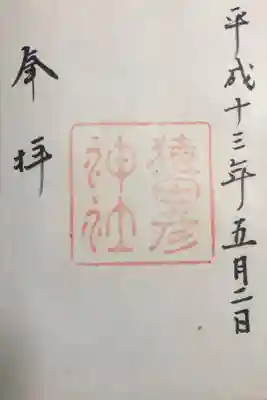 平成十三年五月二日
猿田彦
神社
奉拝